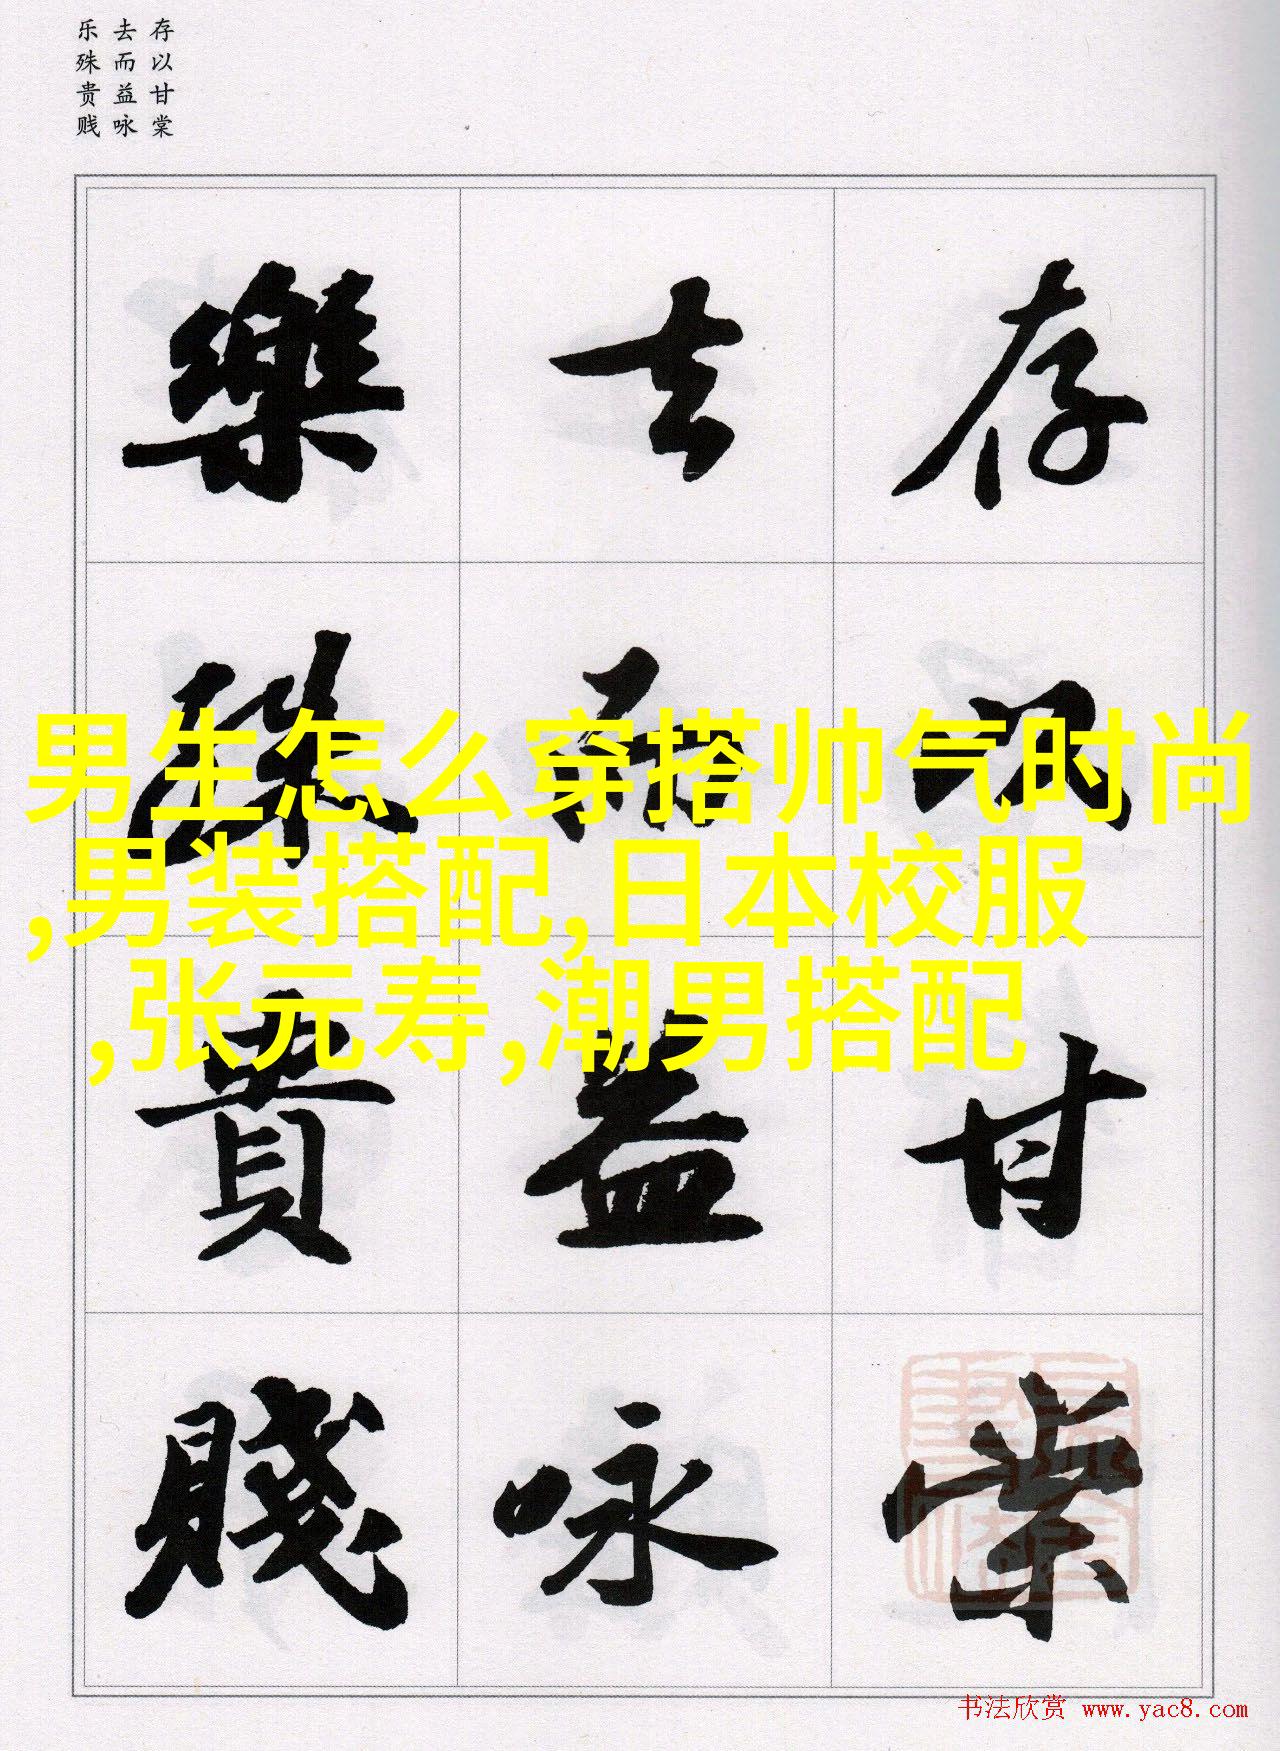 存以甘棠
去而益咏
乐殊贵贱
存以甘棠
去而益咏
樂殊貴賤
男生怎么穿搭帅气时尚
,男装搭配,日本校服
,张元寿,潮男搭配
书法欣赏 www.yac8.com